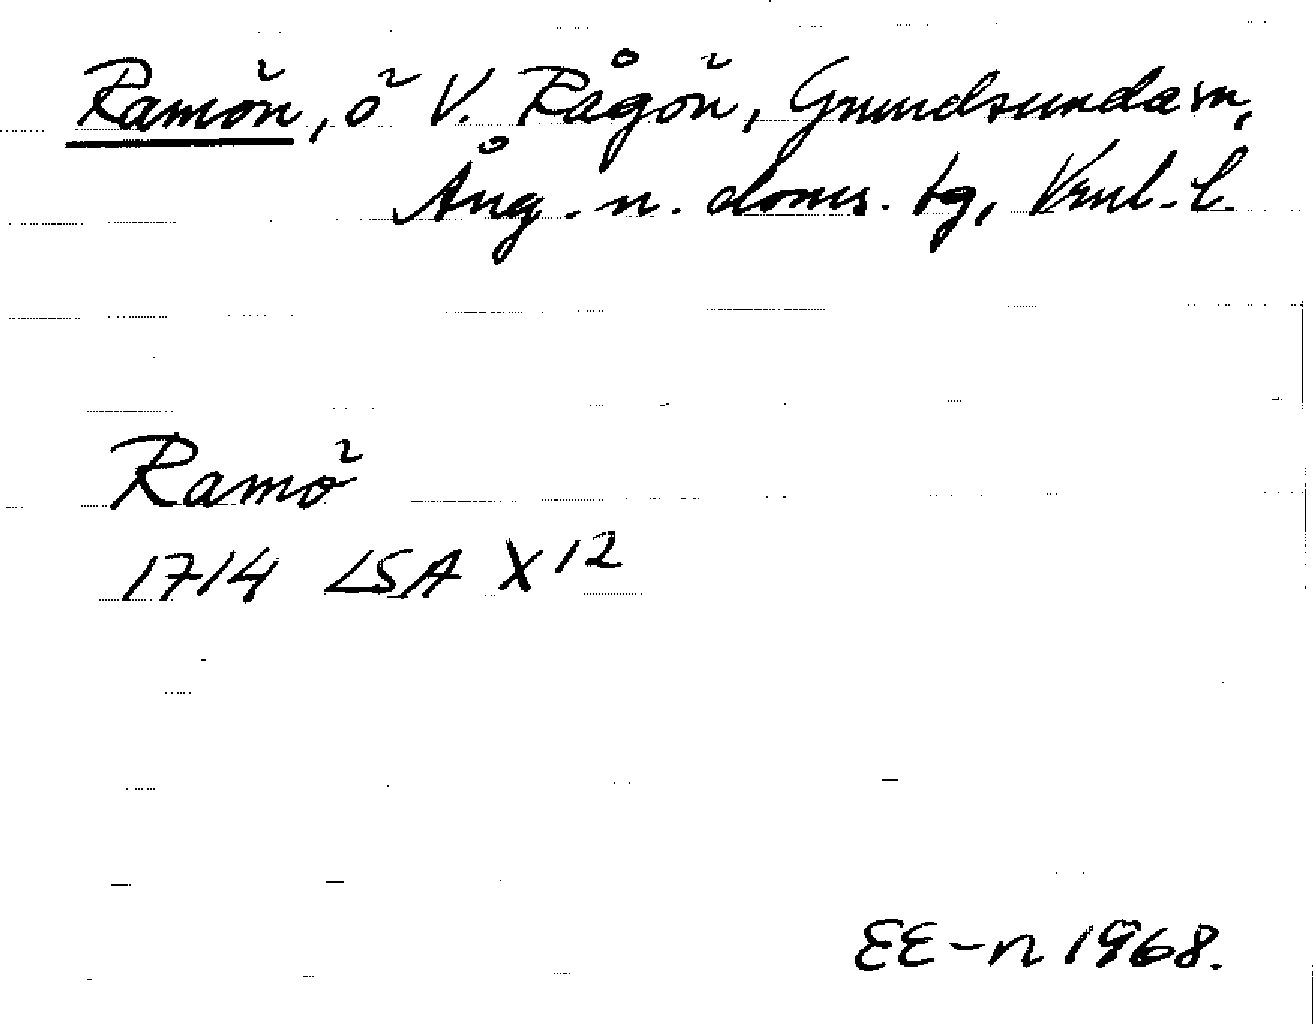 Ramön, ö V. Rågön, Grundsunda sn,
Ång. n. doms. tg, Vnl. l.
Ramö
1714 LSA X 12
EE-n 1968.